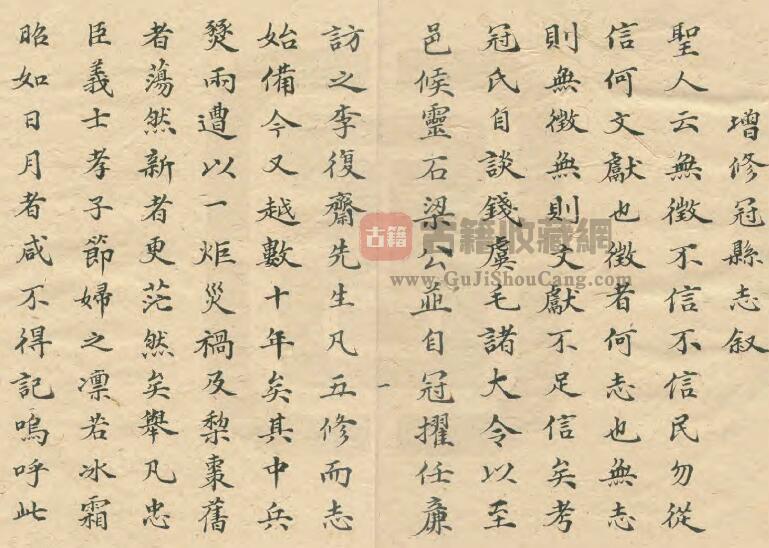 增修冠縣志叙
聖人云無徵不信不信民勿從
信何文獻也徵者何志也無志
則無徵無則文獻不足信矣考
冠氏自談錢虞毛諸大令以至
邑侯靈石梁公並自冠擢任廉
一
訪之李復齋先生凡五修而志
始備今又越數十年矣其中兵
燹雨遭以一炬災禍及棃棗舊
者蕩然新者更茫然矣舉凡忠
臣義士孝子節婦之凛若冰霜
昭如日月者咸不得記嗚呼此
古籍
古籍收藏網
www.GuJiShouCang.com